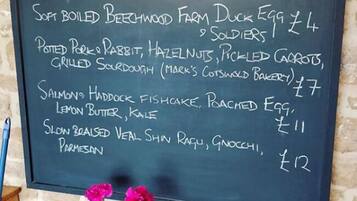 SOFT BOILED BEECHWOOD FARM DUCK EGG £4
& SOLDIERS
POTTED PORK & RABBIT, HAZELNUTS, PICKLED CARROTS,
GRILLED SOURDOUGH (MARK'S COTSWOLD BAKERY) £7
SALMON & HADDOCK FISHCAKE, POACHED EGG,
LEMON BUTTER, KALE £11
SLOW BRAISED VEAL SHIN RAGU, GNOCCHI,
PARMESAN £12